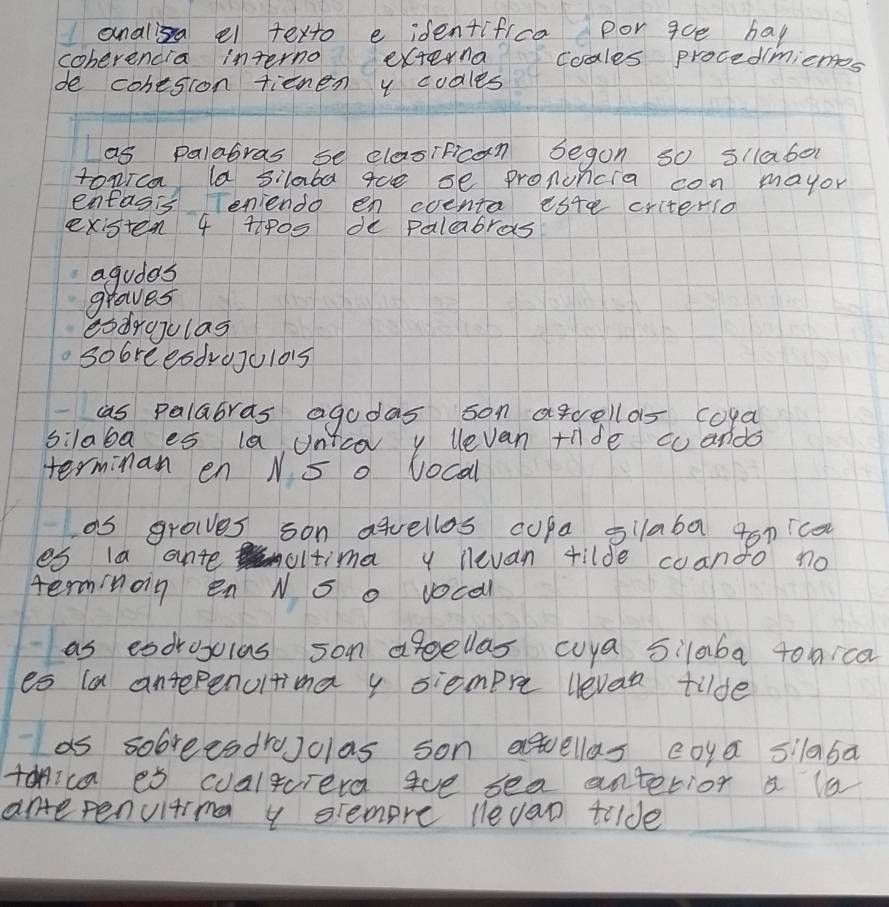 1 analisa el texto e identifica por que hay
coherencia interno externa cuales procedimientos
de cohesion tienen y cuales
Las palabras se clasifican segun su silaba
tonica la silaba que se pronuncia con mayor
enfasis Teniendo en cuenta este criterio
existen 4 tipos de palabras
• agudas
• graves
• esdrujulas
• sobreesdrujulas
- Las palabras agudas son aquellas cuya
silaba es la unica y llevan tilde cuando
terminan en N, S o vocal
- Las graves son aquellas cuya silaba tonica
es la ante ultima y llevan tilde cuando no
terminan en N, S o vocal
- Las esdrujulas son aquellas cuya silaba tonica
es la antepenultima y siempre llevan tilde
- Las sobreesdrujulas son aquellas cuya silaba
tonica es cualquiera que sea anterior a la
antepenultima y siempre llevan tilde